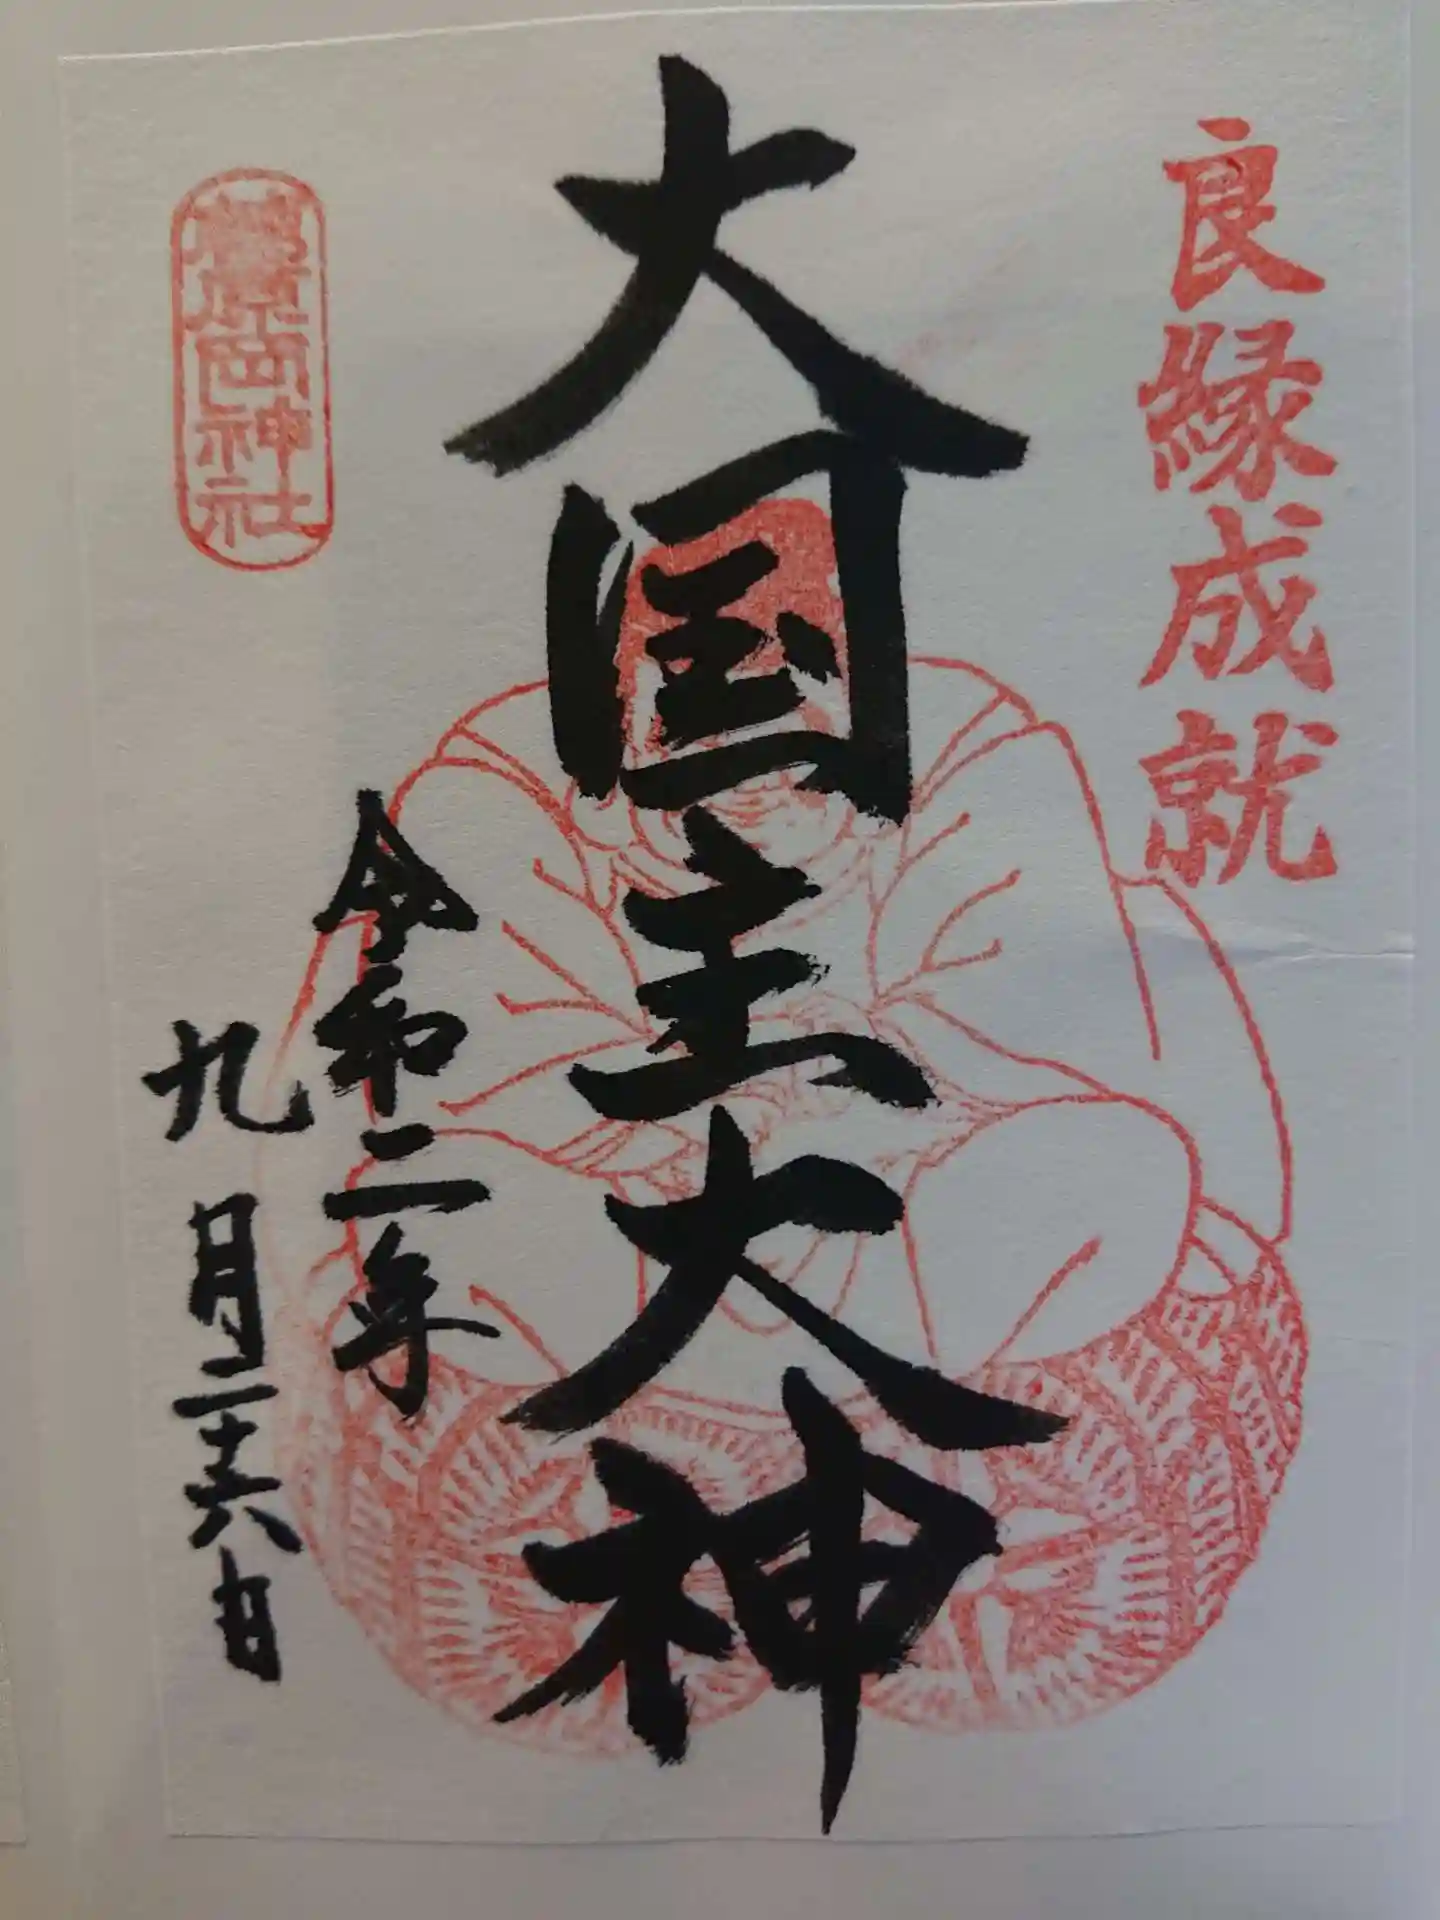 良縁成就
大国主大神
令和二年
九月二十六日
葛原岡神社